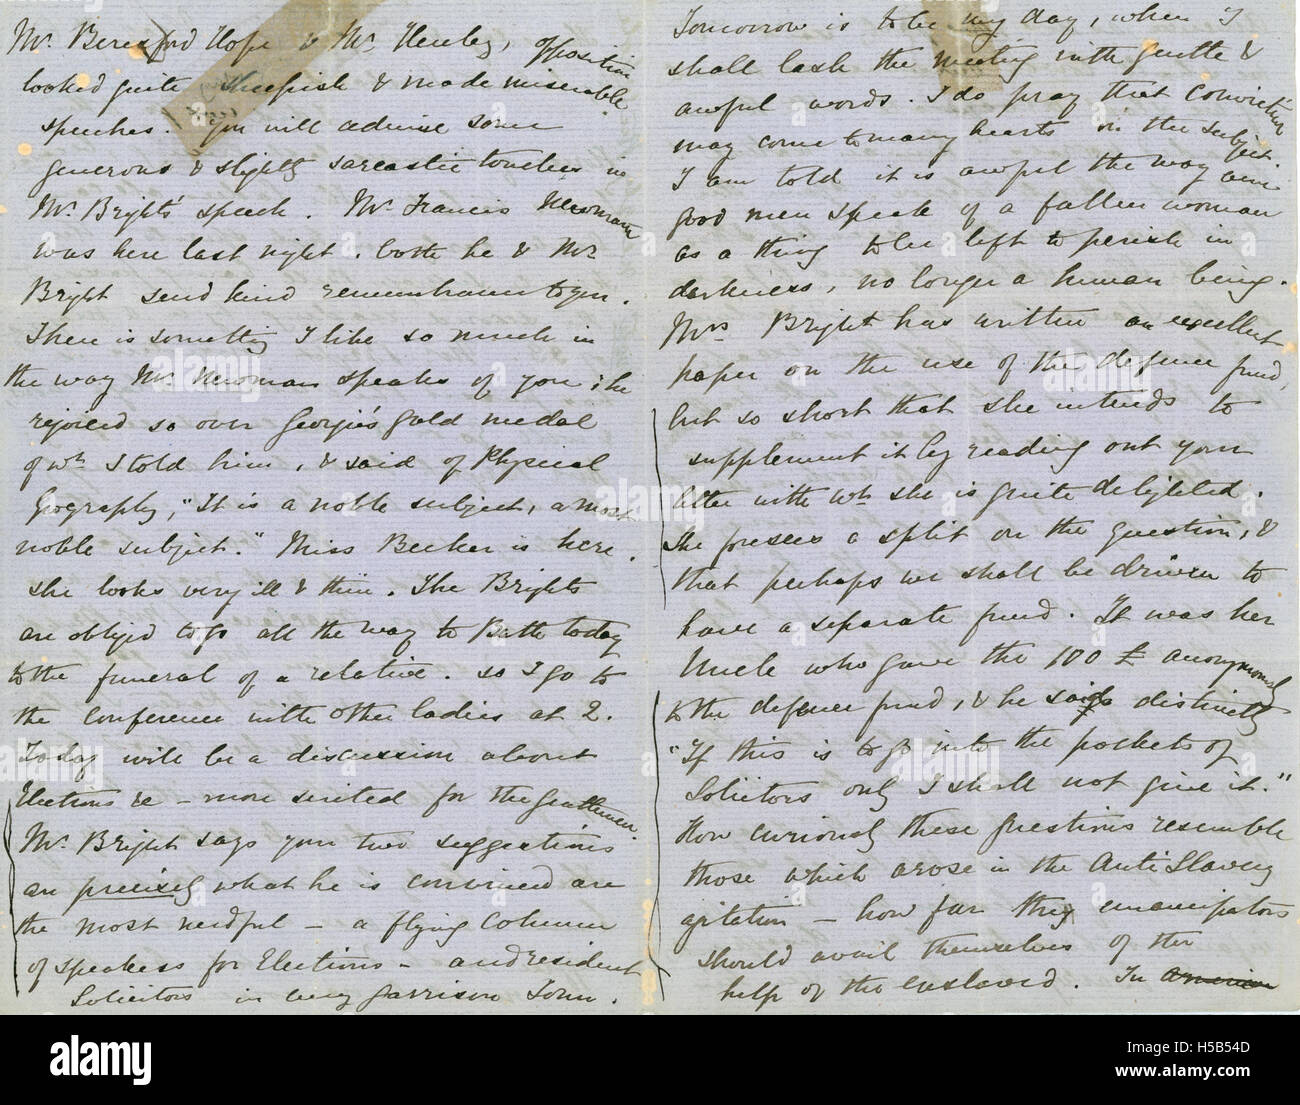 Mr. Beresford Hope & Mr. Henley, opposition
looked quite sheepish & made miserable
speeches. You will admire some
generous & slightly sarcastic touches in
Mr. Bright's speech. Mr. Francis Newman
was here last night. both he & Mr.
Bright send kind remembrances to you.
There is something I like so much in
the way Mr. Newman speaks of you; he
rejoiced so over Georgie's gold medal
of wh I told him, & said of Physical
Geography, "It is a noble subject, a most
noble subject." Miss Becker is here.
she looks very ill & thin. The Brights
are obliged to go all the way to Bath today
to the funeral of a relative. so I go to
the Conference with other ladies at 2.
Today will be a discussion about
Elections &c – more suited for the gentlemen.
Mr. Bright says your two suggestions
are precisely what he is convinced are
the most needful – a flying Column
of speakers for Elections – and resident
Solicitors in every garrison Town.
Tomorrow is to be my day, when I
shall lash the meeting with gentle &
awful words. I do pray that conviction
may come to many hearts on the subject.
I am told it is awful the way even
good men speak of a fallen woman
as a thing to be left to perish in
darkness, no longer a human being.
Mrs Bright has written an excellent
paper on the use of the defence fund,
but so short that she intends to
supplement it by reading out your
letter with wh she is quite delighted.
She foresees a split on the question, &
that perhaps we shall be driven to
have a separate fund. It was her
Uncle who gave the 100 £ anonymously
to the defence fund, & he said distinctly
"If this is to go into the pockets of
Solicitors only I shall not give it."
How curiously these questions resemble
those which arose in the AntiSlavery
agitation – how far the emancipators
should avail themselves of the
help of the enslaved. In American
alamy stock photo
H5B54D
www.alamy.com